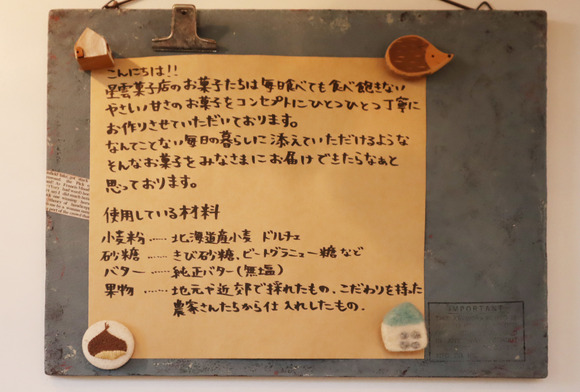 こんにちは!!
星雲菓子店のお菓子たちは毎日食べても食べ飽きない
やさしい甘さのお菓子をコンセプトにひとつひとつ丁寧に
お作りさせていただいております。
なんてことない毎日の暮らしに添えていただけるような
そんなお菓子をみなさまにお届けできたらなぁと
思っております。
使用している材料
小麦粉……北海道産小麦 ドルチェ
砂糖……きび砂糖、ビートグラニュー糖など
バター……純正バター(無塩)
果物……地元や近郊で採れたもの、こだわりを持った
農家さんたちから仕入れしたもの.
IMPORTANT